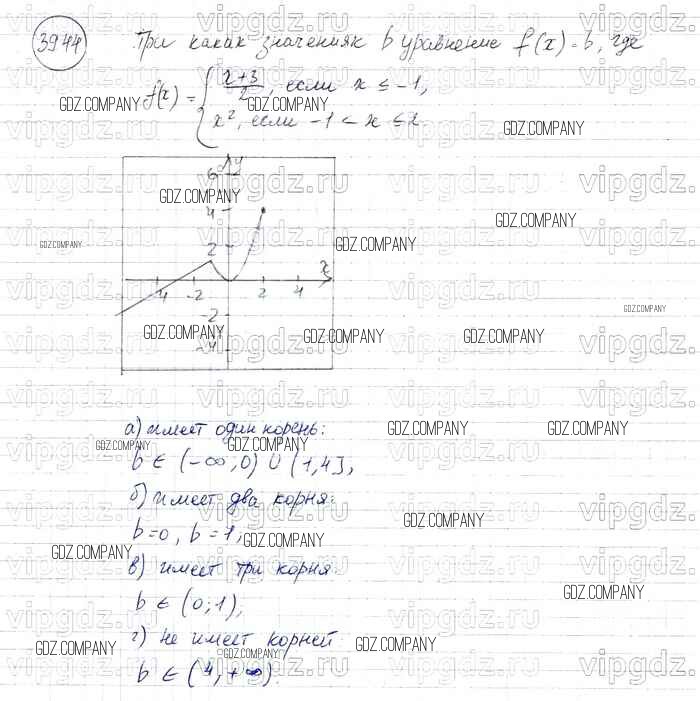 3944
При каких значениях b уравнение f(x)=b, где
f(x) = { x+3/2, если x ≤ -1,
x², если -1 < x ≤ 2
y
6
4
2
x
-4 -2 2 4
-2
-4
а) имеет один корень:
b ∈ (-∞; 0) ∪ (1, 4],
б) имеет два корня:
b=0, b=1,
в) имеет три корня:
b ∈ (0; 1),
г) не имеет корней
b ∈ (4, +∞)
vipgdz.ru
GDZ.COMPANY